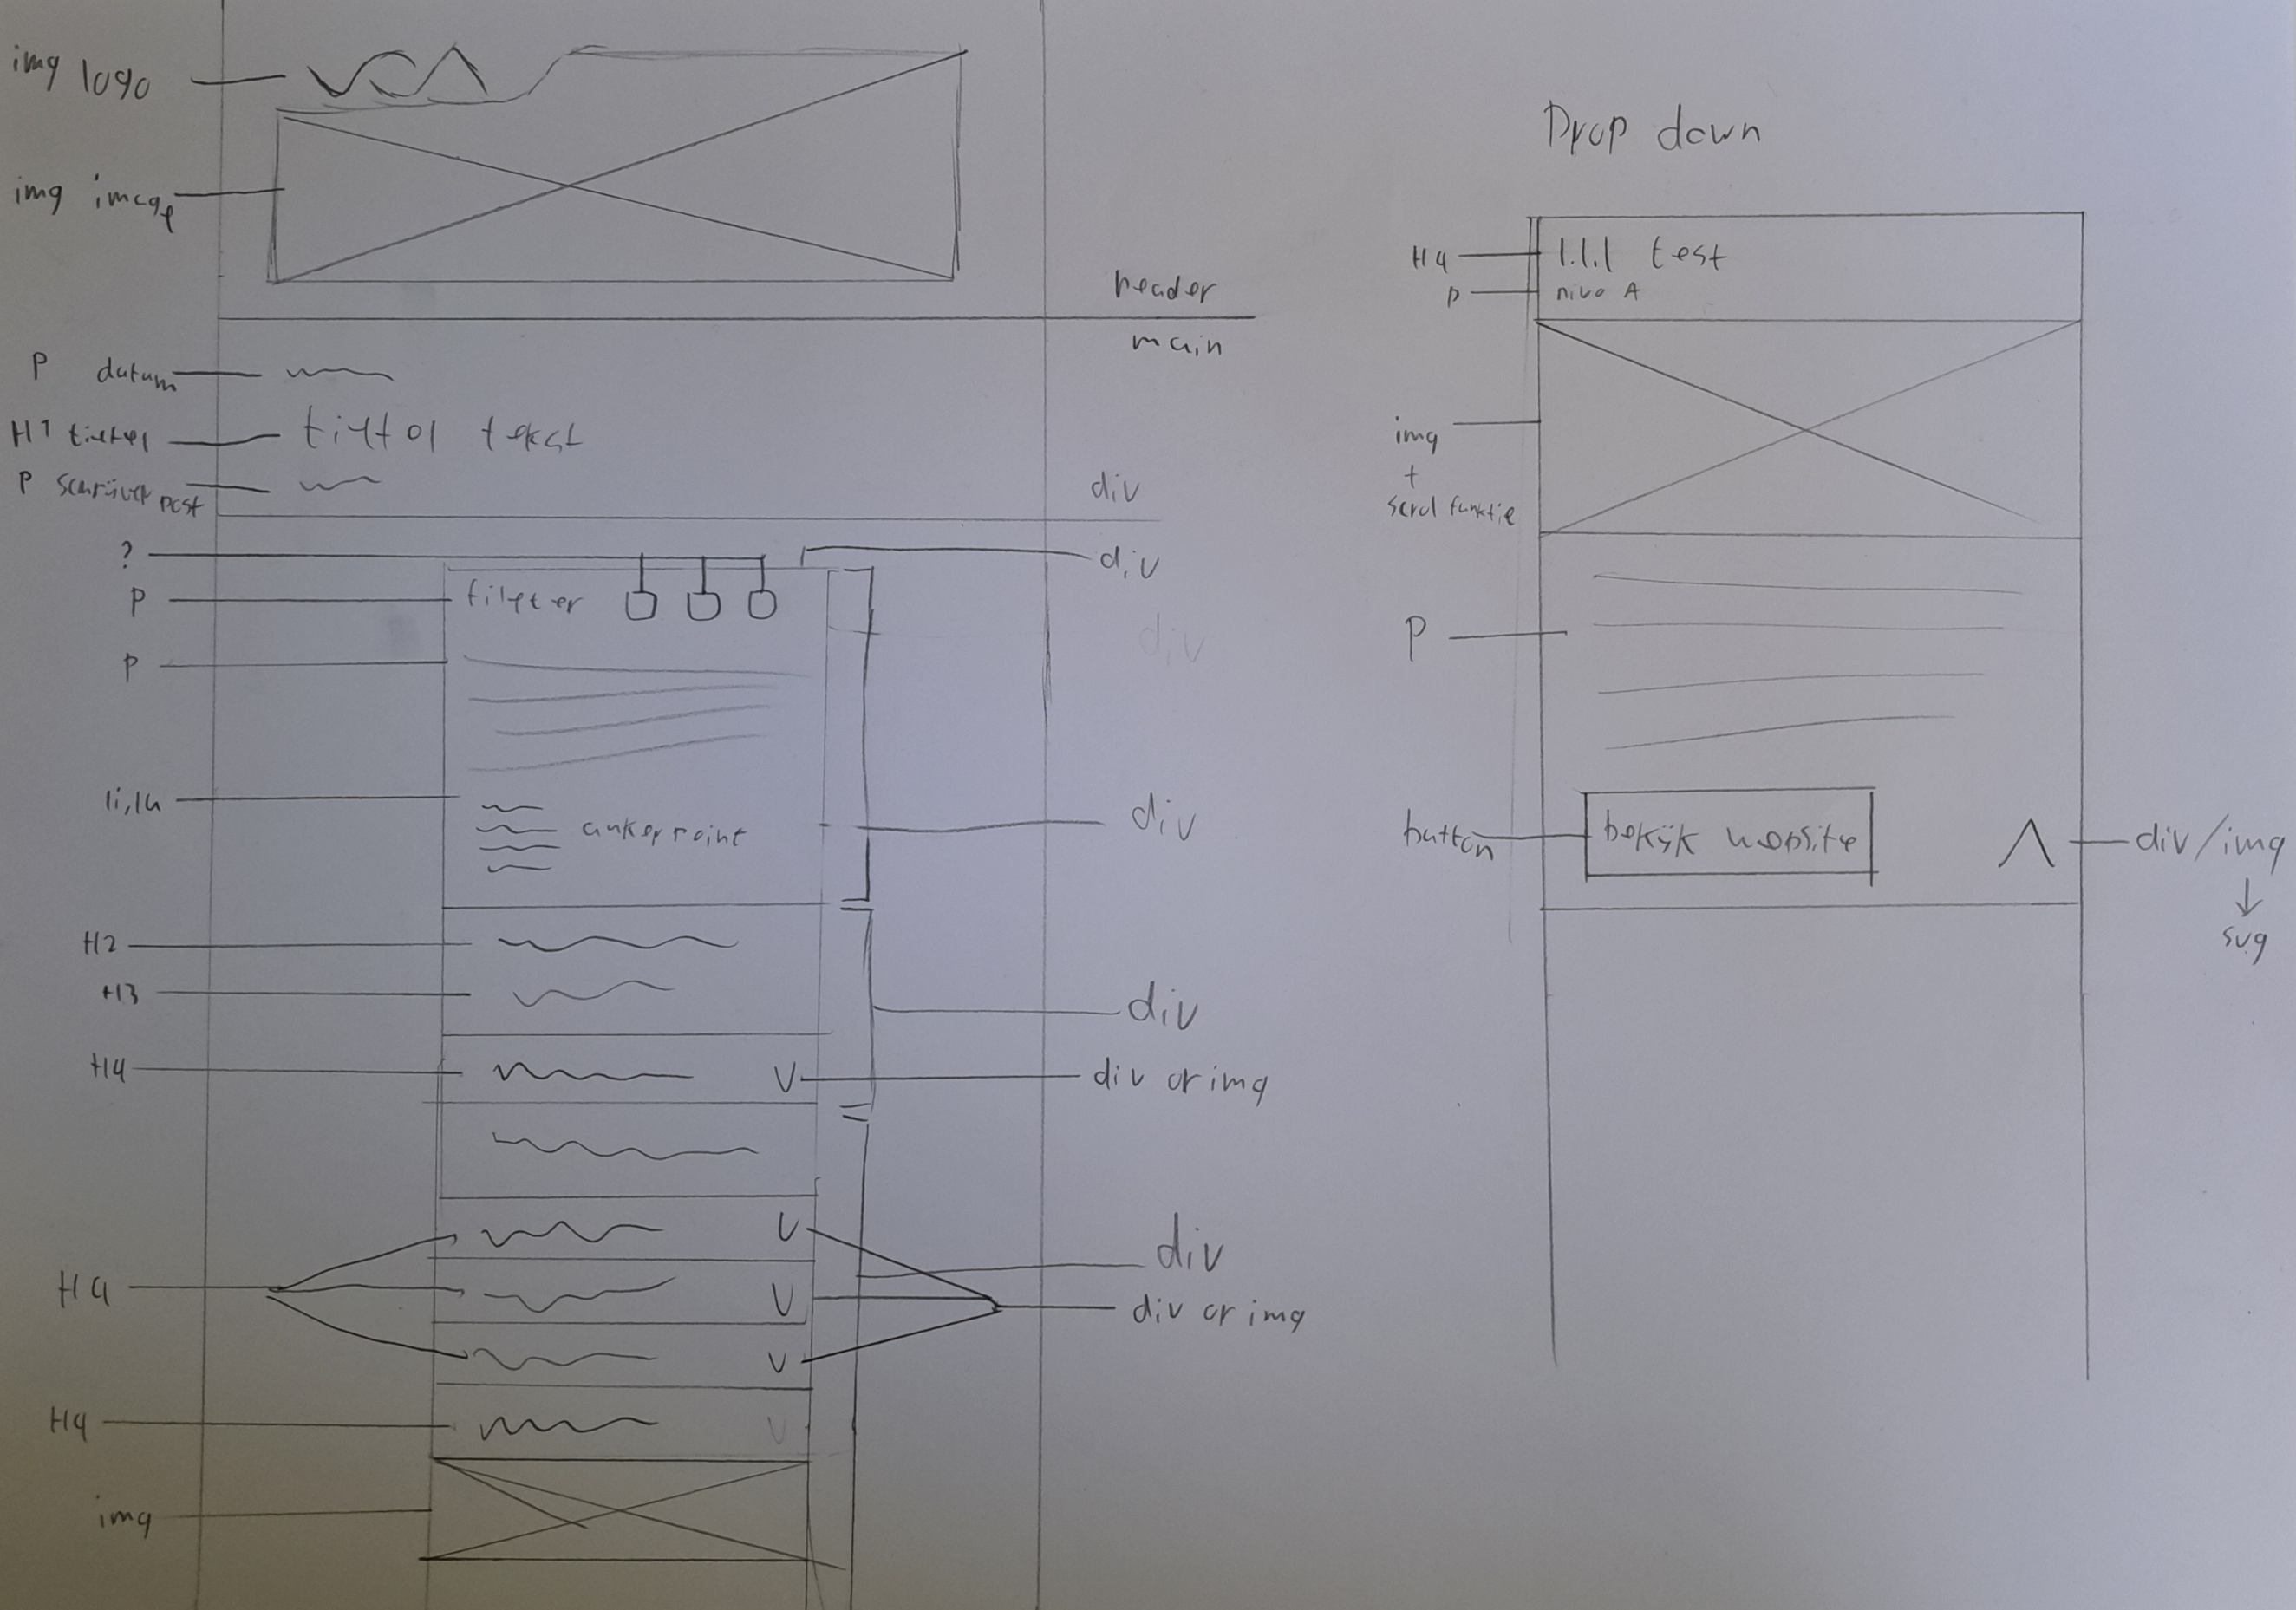 img logo
VCA
img image
header
main
P datum
H1 tiettel
tiettel tekst
P schrijver post
div
?
div
P
filpter
P
div
li, lu
ankerpoint
div
H2
H3
div
H4
V
div or img
V
div
H4
V
div or img
V
H4
V
img
Drop down
H4
1.1.1 test
p
nivo A
img
+
scrol funktie
P
button
bekijk website
div/img
↓
svg